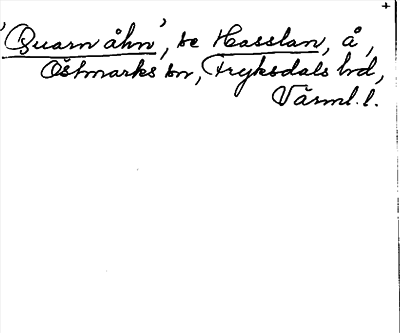 'Quarn åhn', se Hasslan, å,
Östmarks sn, Fryksdals hd,
Värml. l.